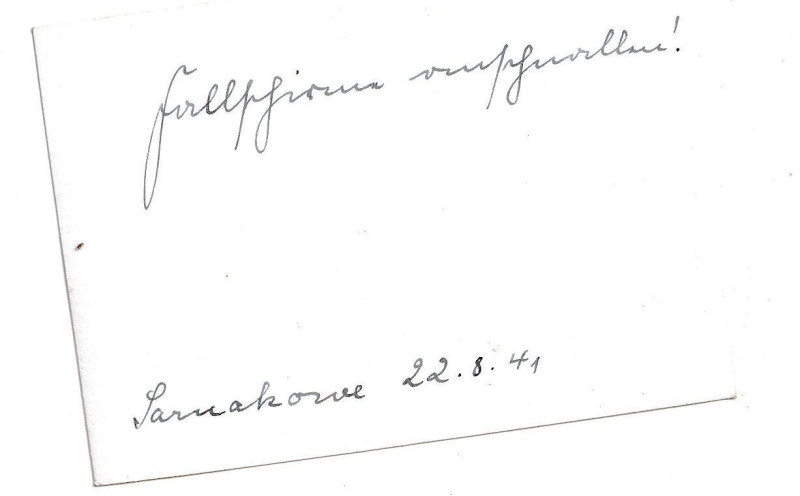 Fallschirme anschnallen!
Sarnakowe 22.8.41